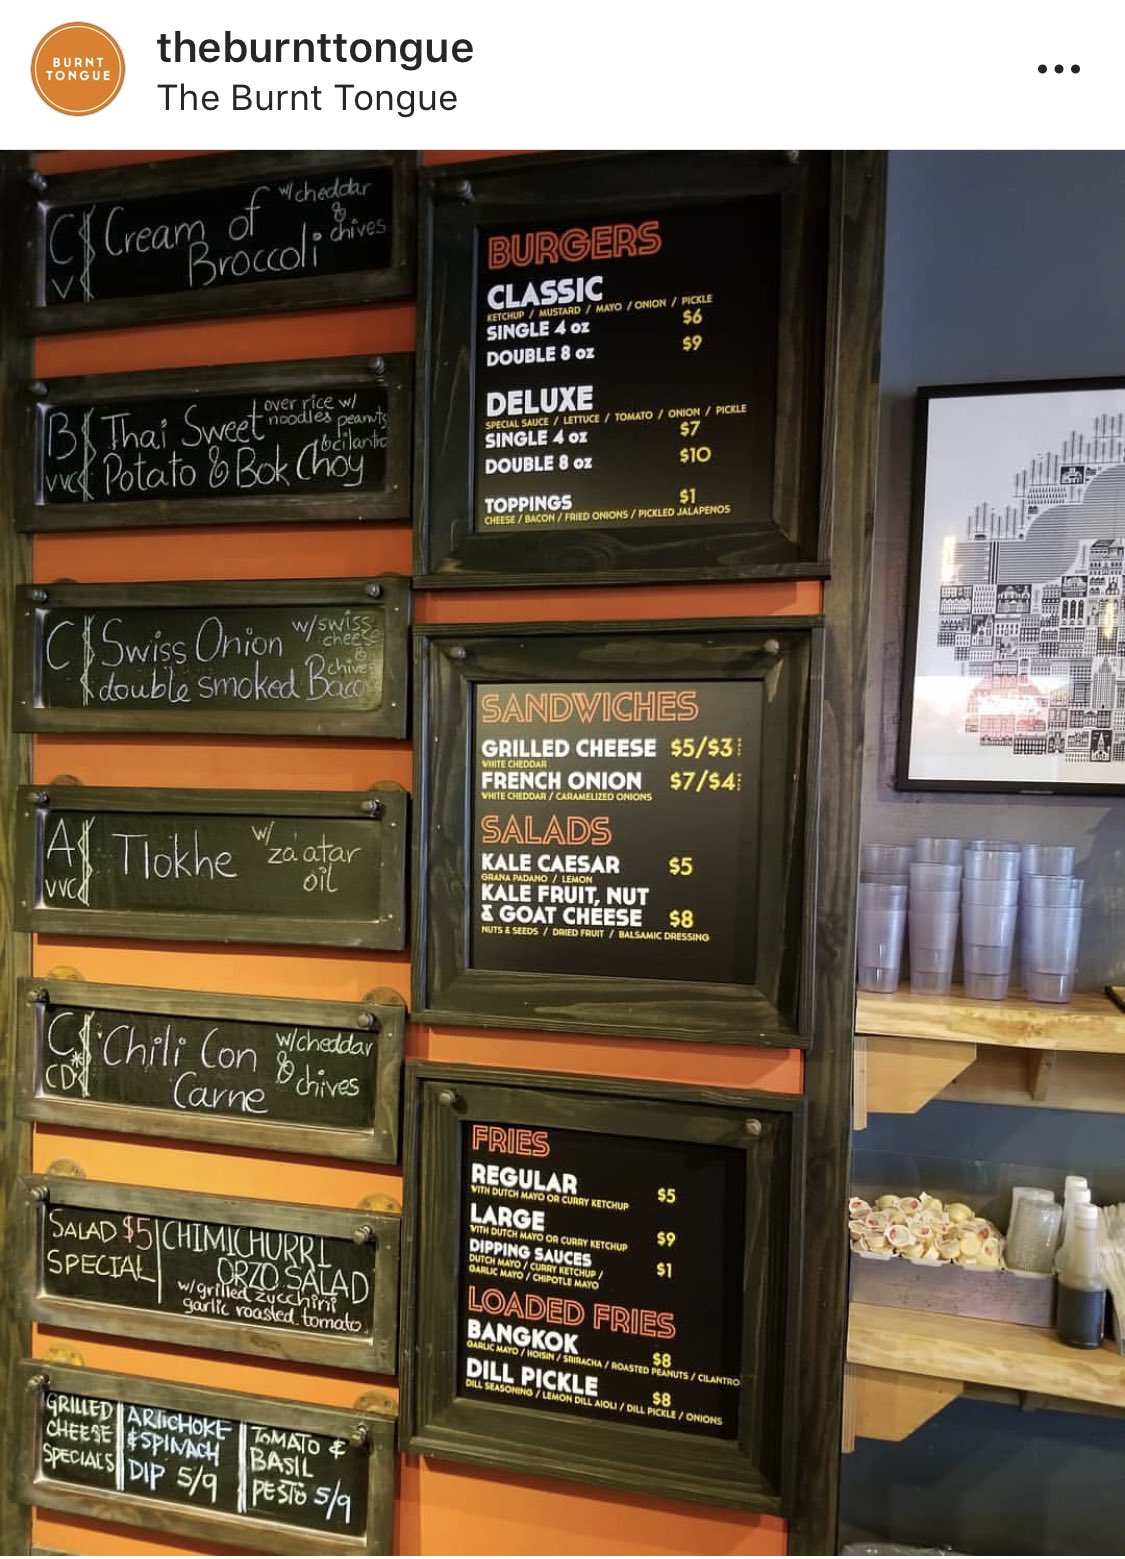 theburnttongue
The Burnt Tongue
BURNT
TONGUE
C
V
Cream of
Broccoli
w/cheddar
&
chives
B
VVGF
Thai Sweet
Potato & Bok Choy
over rice w/
noodles peanuts
& cilantro
C
Swiss Onion
double smoked Baco
w/swiss
cheese
&
chive
A
VVGF
Tlokhe
w/
za'atar
oil
C
*
CD
Chili Con
Carne
w/cheddar
&
chives
SALAD $5
SPECIAL
CHIMICHURRI
ORZO SALAD
w/grilled zucchini
garlic roasted tomato
GRILLED
CHEESE
SPECIALS
ARTICHOKE
& SPINACH
DIP 5/9
TOMATO &
BASIL
PESTO 5/9
BURGERS
CLASSIC
KETCHUP / MUSTARD / MAYO / ONION / PICKLE
SINGLE 4 oz $6
DOUBLE 8 oz $9
DELUXE
SPECIAL SAUCE / LETTUCE / TOMATO / ONION / PICKLE
SINGLE 4 oz $7
DOUBLE 8 oz $10
TOPPINGS $1
CHEESE / BACON / FRIED ONIONS / PICKLED JALAPENOS
SANDWICHES
GRILLED CHEESE $5/$3
WHITE CHEDDAR
FRENCH ONION $7/$4
WHITE CHEDDAR / CARAMELIZED ONIONS
SALADS
KALE CAESAR $5
GRANA PADANO / LEMON
KALE FRUIT, NUT
& GOAT CHEESE $8
NUTS & SEEDS / DRIED FRUIT / BALSAMIC DRESSING
FRIES
REGULAR $5
WITH DUTCH MAYO OR CURRY KETCHUP
LARGE $9
WITH DUTCH MAYO OR CURRY KETCHUP
DIPPING SAUCES $1
DUTCH MAYO / CURRY KETCHUP /
GARLIC MAYO / CHIPOTLE MAYO
LOADED FRIES
BANGKOK $8
GARLIC MAYO / HOISIN / SRIRACHA / ROASTED PEANUTS / CILANTRO
DILL PICKLE $8
DILL SEASONING / LEMON DILL AIOLI / DILL PICKLE / ONIONS